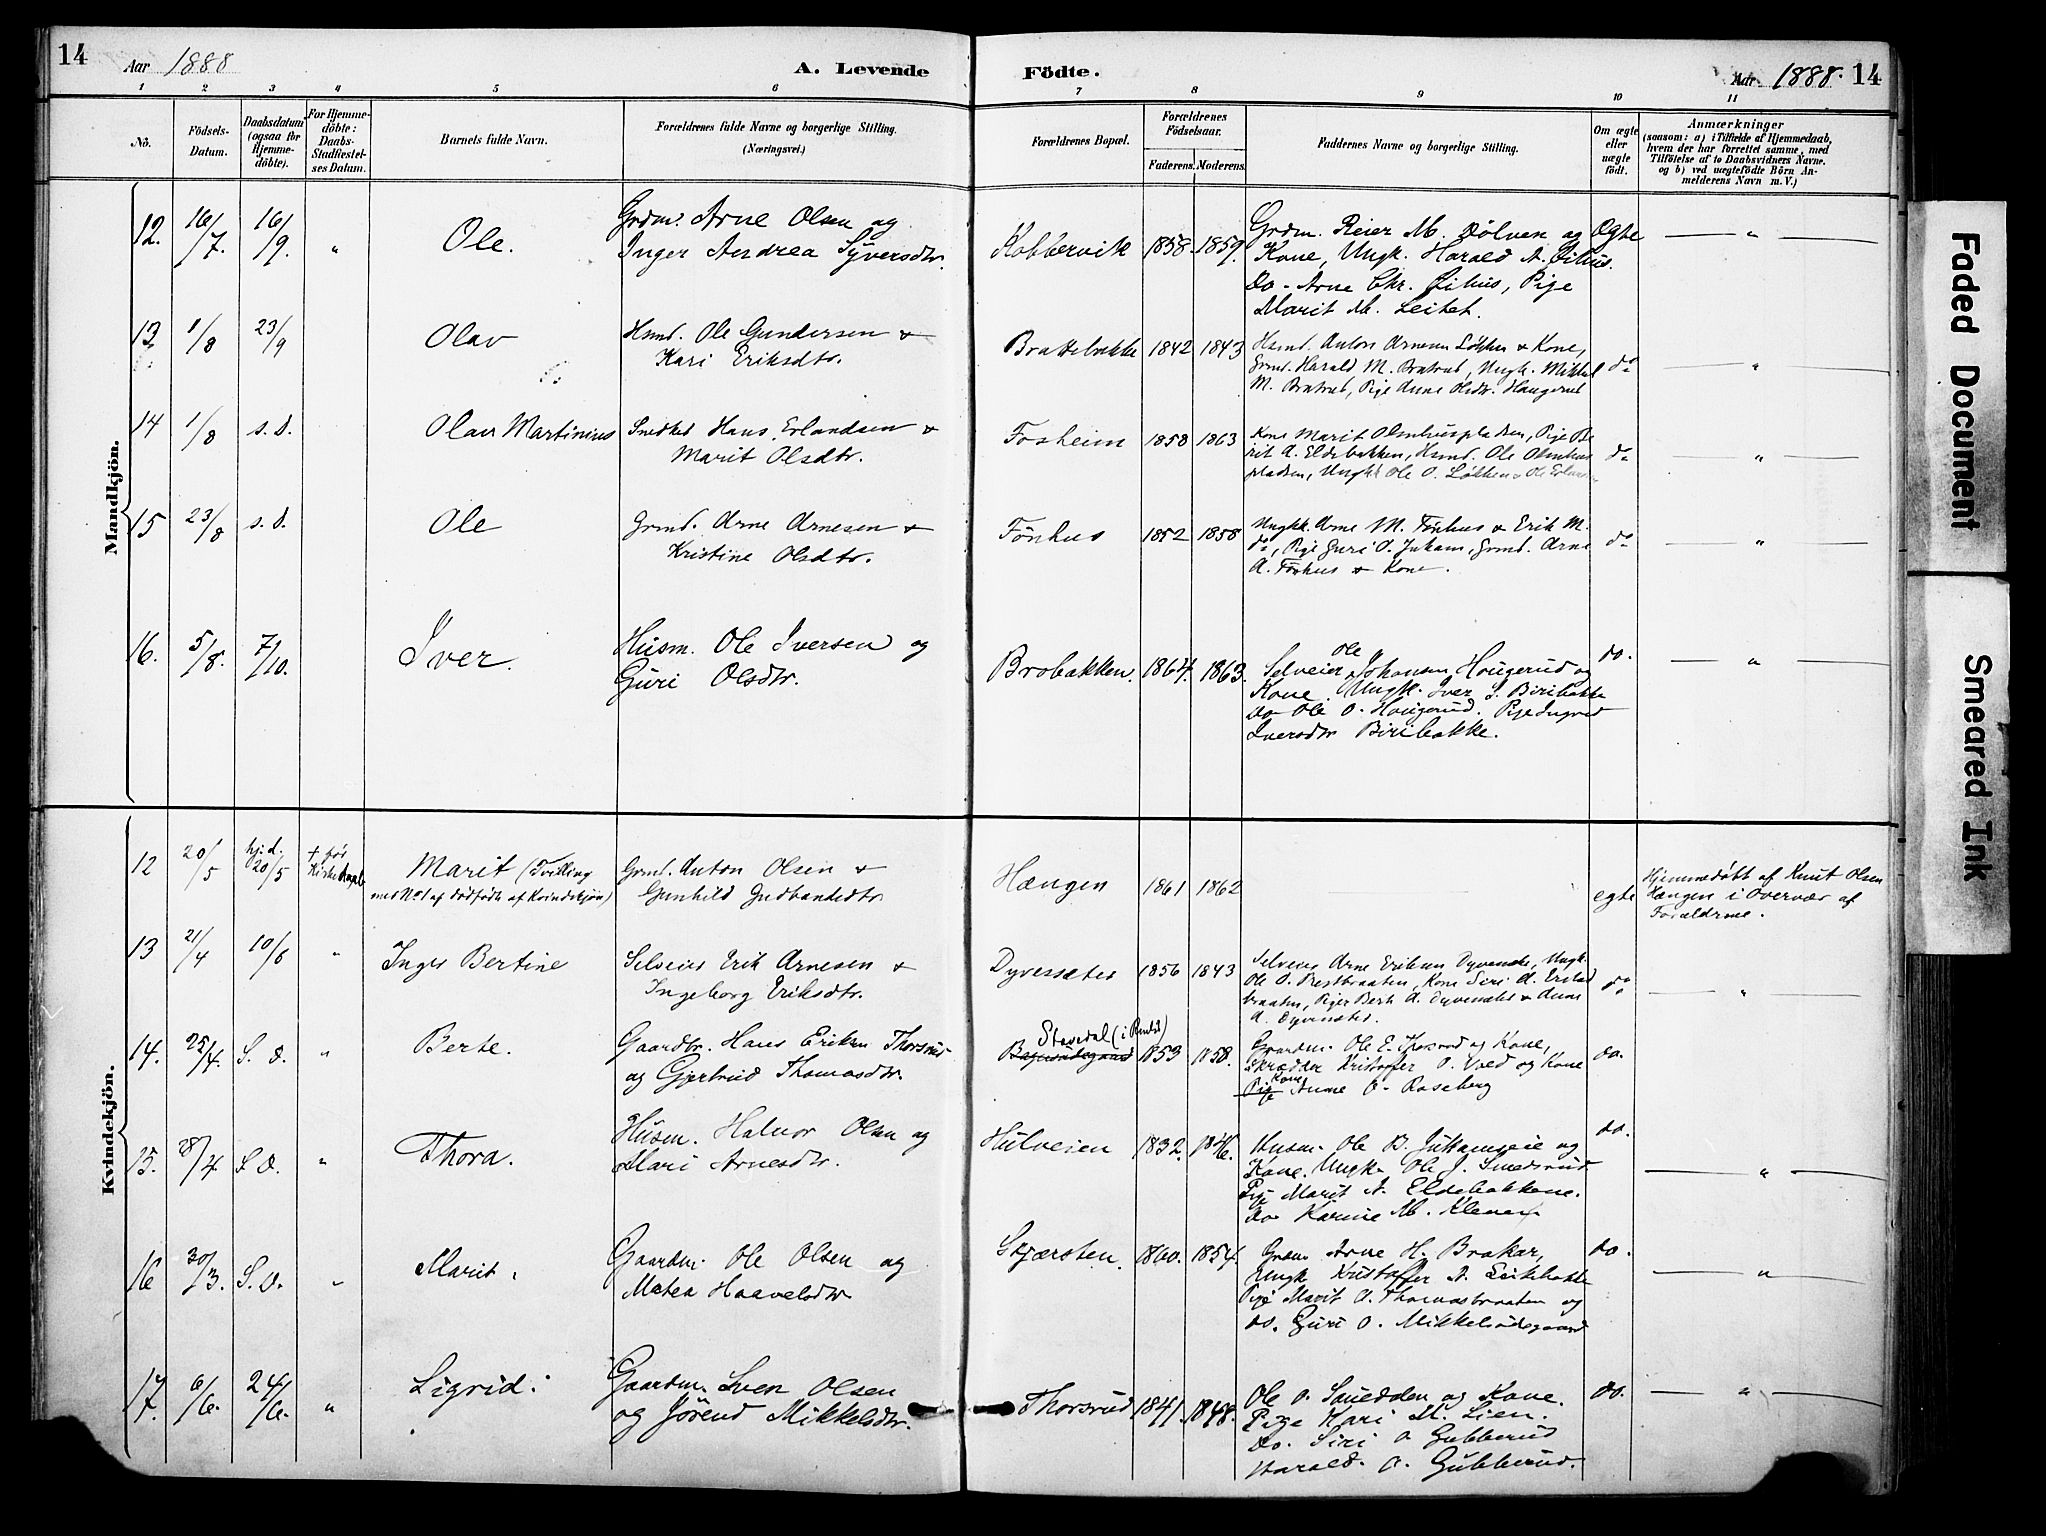 14
Aar 1888
A. Levende
Födte.
Aar 1888. 14
1 2 3 4 5 6 7 8 9 10 11
No.
Födsels-
Datum.
Daabsdatum
(ogsaa for
Hjemme-
döbte).
For Hjemme-
döbte:
Daabs-
Stadfæstel-
ses Datum.
Barnets fulde Navn.
Forældrenes fulde Navne og borgerlige Stilling.
(Næringsvei.)
Forældrenes Bopæl.
Forældrenes
Födselsaar.
Faderens. Moderens.
Faddernes Navne og borgerlige Stilling.
Om ægte
eller
uægte
födt.
Anmærkninger
(saasom: a) i Tilfælde af Hjemmedaab,
hvem der har forrettet samme, med
Tilföielse af to Daabsvidners Navne,
og b) ved uægtefödte Börn An-
melderens Navn m. V.)
Mandkjön.
12. 16/7. 16/9. "
Ole.
Grdm. Arne Olsen og
Inger Andrea Syversdtr.
Kobbervik 1858. 1859.
Grdm. Reier M. Dölven og
Kone, Ungk. Harald A.
Do - Arne Chr. Pige
Marit M. Leitet.
Ægte
"
13 1/8 23/9
Olav
Hsmd. Ole Gundersen &
Kari Eriksdtr.
Brattebakke 1842 1843
Hsmd. Anton Arnesen Løkken & Kone,
Grmd. Harald M. Bratrud, Ungk. Mikkel
M. Bratrud, Pige Anne Olsdtr. Haugerud
do
"
14 1/8 s. d.
Olav Martinius
Snedker Hans Erlandsen &
Marit Olsdtr.
Fosheim 1858 1863
Kone Marit Olmhuspladsen, Pige Be-
rit A. Eldebakken, Hsmd. Ole Olmhus
pladsen, Ungk. Ole O. Løkken & Ole
do
"
15 23/8 s. d.
Ole
Grmd. Arne Arnesen &
Kristine Olsdtr.
Fönhus 1852 1858
Ungk. Arne M. Fönhus & Erik M.
do, Pige Guri O. Grmd. Arne
A. Fönhus & Kone.
do
"
16. 5/8. 7/10.
Iver.
Husm. Ole Iversen og
Guri Olsdtr.
Brobakken. 1864. 1863.
Ole
Selveier Johansen Hougerud og
Kone. Ungk. Iver I. Biribakke
Do Ole O. Hougerud. Pige Ingrid
Iversdtr Biribakke.
do.
"
Kvindekjön.
12 20/5 hj.d. 20/5
+ før
Marit (Tvilling
med No 1 af dødfødte af Kvindekjön)
Grmd. Anton Olsen &
Gunhild Gudbrandsdtr
Hængen 1861 1862
egte
Hjemmedøbt af Knut Olsen
Hængen i Overvær af
Forældrene.
13 21/4 10/6 "
Inger Bertine
Selveier Erik Arnesen &
Ingeborg Eriksdtr.
Dyvesæter 1856 1843
Selveier Arne Eriksen Dyvesæter, Ungk.
Ole O. Kone Siri A.
braaten, Piger Berit A. Dyvesæter & Anne
A. Dyvesæter.
do
"
14. 25/4. S. D. "
Berte.
Gaardbr. Hans Eriksen Thorsrud
og Gjertrud Thomasdtr.
Stavedal (i )
1853 1858.
Gaardm. Ole E. Thorsrud og Kone,
Skrædder Kristoffer O. Vold og Kone
Pige Kone Anne O. Roseberg
do.
15. 28/4 S. D. "
Thora.
Husm. Halvor Olsen og
Mari Arnesdtr.
Hulveien 1832. 1846.
Husm. Ole B. og
Kone. Ungk. Ole J. Smedsrud
Pige Marit A. Eldebakkene.
Do Karine M.
do.
"
16 30/3. S. D. "
Marit.
Gaardm. Ole Olsen og
Matea Haavelsdtr
Skjærsten. 1860. 1854.
Grdm Arne H. Brakar,
Ungk. Kristoffer A.
Pige Marit O. Thomasbraaten og
do. Guri O. Mikkelsødegaard
do.
"
17. 6/6. 24/6. "
Sigrid.
Gaardm. Sven Olsen
og Jörend Mikkelsdtr.
Thorsrud 1841. 1848.
Ole O. og Kone.
Pige Kari M. Lien.
Do. Siri O Gubberud
Harald. O. Gubberud.
do.
"
Faded Document
Smeared Ink